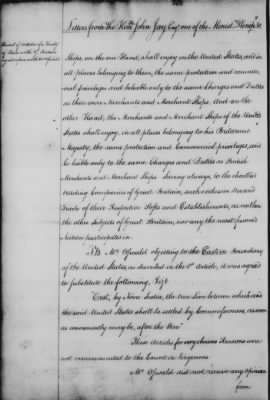 Letters from The Honble John Jay Esqr one of the Minist. Plenipo. &c
Ships, on the one Hand, shall enjoy in the United States, and in
all places belonging to them, the same protection and commer-
cial privileges and be liable only to the same Charges and Duties
as their own Merchants and Merchant Ships, And on the
other Hand, the Merchants and Merchant Ships of the United
States shall enjoy, in all places belonging to his Britannic
Majesty, the same protection and Commercial privileges, and
be liable only to the same Charges and Duties as British
Merchants and Merchant Ships Saving always, to the charter'd
trading Companies of Great Britain, such exclusive Use and
Trade of their Respective Posts and Establishments, as neither
the other Subjects of Great Britain, nor any the most favor'd
Nation participates in.
NB Mr Oswald objecting to the Eastern Boundary
of the United States, as described in the Article, it was agreed
to substitute the following, Vizt
East, by Nova Scotia, the true Line between which and
the said United States shall be settled by Commissioners, as soon
as conveniently may be, after the War
These Articles for very obvious Reasons were
not communicated to the Count de Vergennes
Mr Oswald did not receive any opinion
from